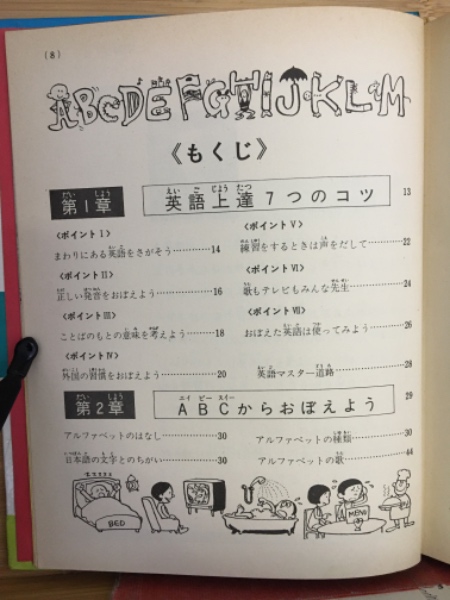 (8)
ABCDEFGHIJKLM
《もくじ》
第1章 英語上達7つのコツ 13
〈ポイントI〉
まわりにある英語をさがそう…………14
〈ポイントII〉
正しい発音をおぼえよう…………16
〈ポイントIII〉
ことばのもとの意味を考えよう………18
〈ポイントIV〉
外国の習慣をおぼえよう…………20
〈ポイントV〉
練習をするときは声をだして…………22
〈ポイントVI〉
歌もテレビもみんな先生…………24
〈ポイントVII〉
おぼえた英語は使ってみよう…………26
英語マスター道路…………28
第2章 ABCからおぼえよう 29
アルファベットのはなし…………30
日本語の文字とのちがい…………30
アルファベットの種類…………30
アルファベットの歌…………44
BED
MENU